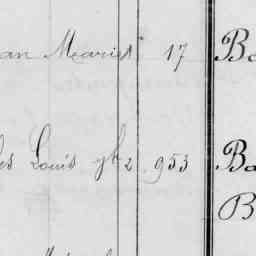 an Marie 17 Ba
es Louis 2 953 Ba
B